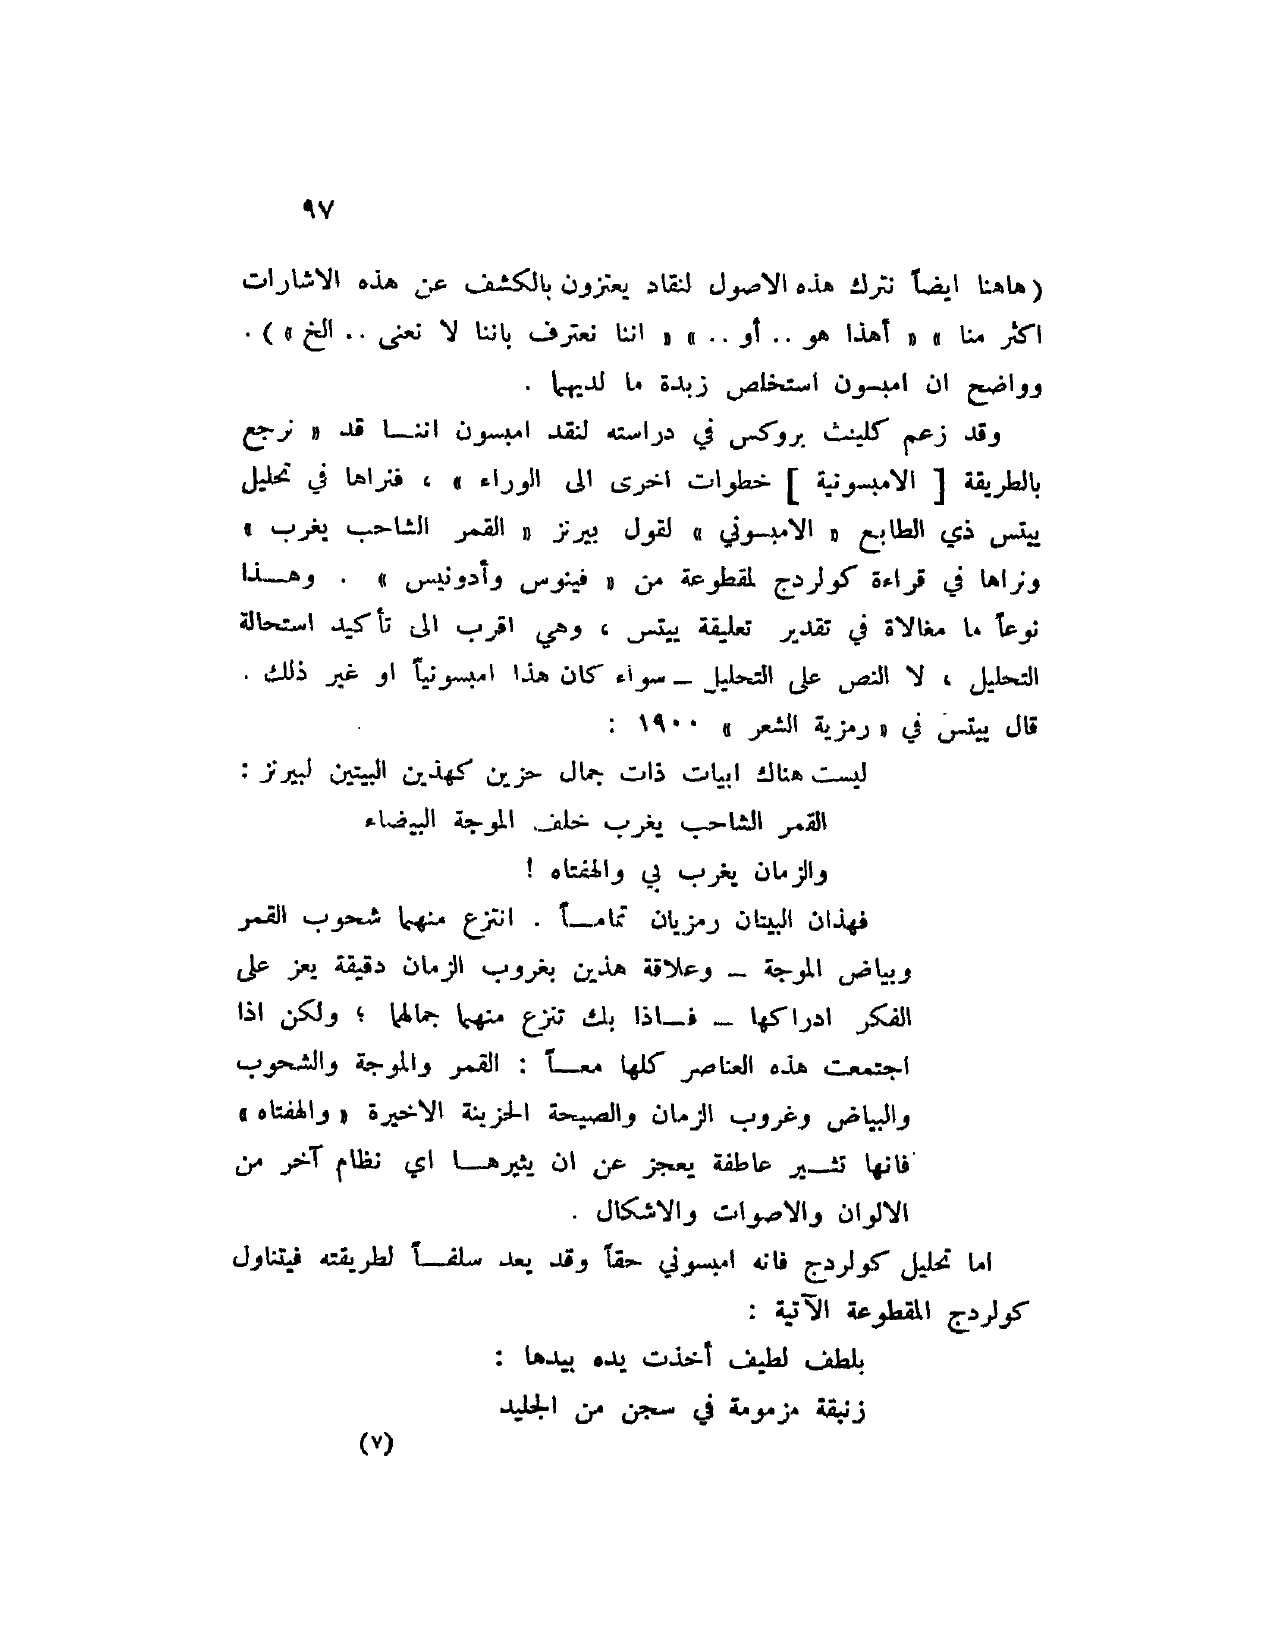 ٩٧
(هاهنا ايضاً نترك هذه الاصول لنقاد يعتزون بالكشف عن هذه الاشارات
اكثر منا » « أهذا هو .. أو .. » « اننا نعترف باننا لا نعنى .. الخ » ) .
وواضح ان امبسون استخلص زبدة ما لديهما .
وقد زعم كلينث بروكس في دراسته لنقد امبسون اننــا قد « نرجع
بالطريقة [ الامبسونية ] خطوات اخرى الى الوراء » ، فنراها في تحليل
ييتس ذي الطابع « الامبسوني » لقول بيرنز « القمر الشاحب يغرب »
ونراها في قراءة كولردج لمقطوعة من « فينوس وأدونيس » . وهــذا
نوعاً ما مغالاة في تقدير تعليقة ييتس ، وهي اقرب الى تأكيد استحالة
التحليل ، لا النص على التحليل – سواء كان هذا امبسونياً او غير ذلك .
قال ييتس في « رمزية الشعر » ١٩٠٠ :
ليست هناك ابيات ذات جمال حزين كهذين البيتين لبيرنز :
القمر الشاحب يغرب خلف الموجة البيضاء
والزمان يغرب بي والهفتاه !
فهذان البيتان رمزيان تمامــاً . انتزع منهما شحوب القمر
وبياض الموجة – وعلاقة هذين بغروب الزمان دقيقة يعز على
الفكر ادراكها – فــاذا بك تنزع منهما جمالهما ؛ ولكن اذا
اجتمعت هذه العناصر كلها معــاً : القمر والموجة والشحوب
والبياض وغروب الزمان والصيحة الحزينة الاخيرة « والهفتاه »
فانها تثــير عاطفة يعجز عن ان يثيرهــا اي نظام آخر من
الالوان والاصوات والاشكال .
اما تحليل كولردج فانه امبسوني حقاً وقد يعد سلفــاً لطريقته فيتناول
كولردج المقطوعة الآتية :
بلطف لطيف أخذت يده بيدها :
زنبقة مزمومة في سجن من الجليد
(٧)